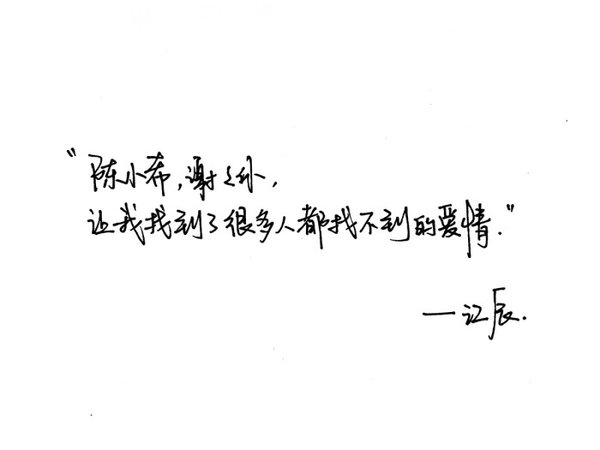 “陈小希,谢谢你,
让我找到了很多人都找不到的爱情.”
—江辰.